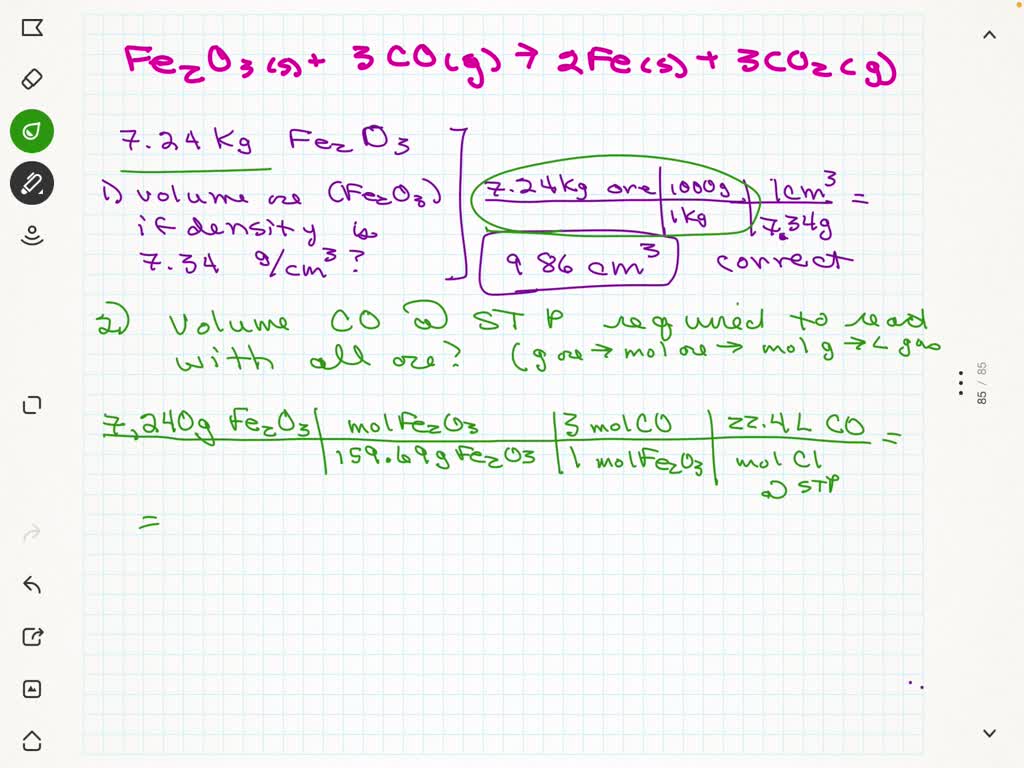 Fe2O3(s) + 3CO(g) → 2Fe(s) + 3CO2(g)
7.24 Kg Fe2O3
1) volume ore (Fe2O3)
if density is
7.34 g/cm³?
7.24Kg ore | 1000g | 1cm³ =
1Kg | 7.34g
986 cm³ correct
2) Volume CO @ STP required to read
with all ore? (g ore → mol ore → mol g → L gas
7,240g Fe2O3 | mol Fe2O3 | 3 mol CO | 22.4 L CO =
159.69g Fe2O3 | 1 mol Fe2O3 | mol Cl
@ STP
=
85 / 85